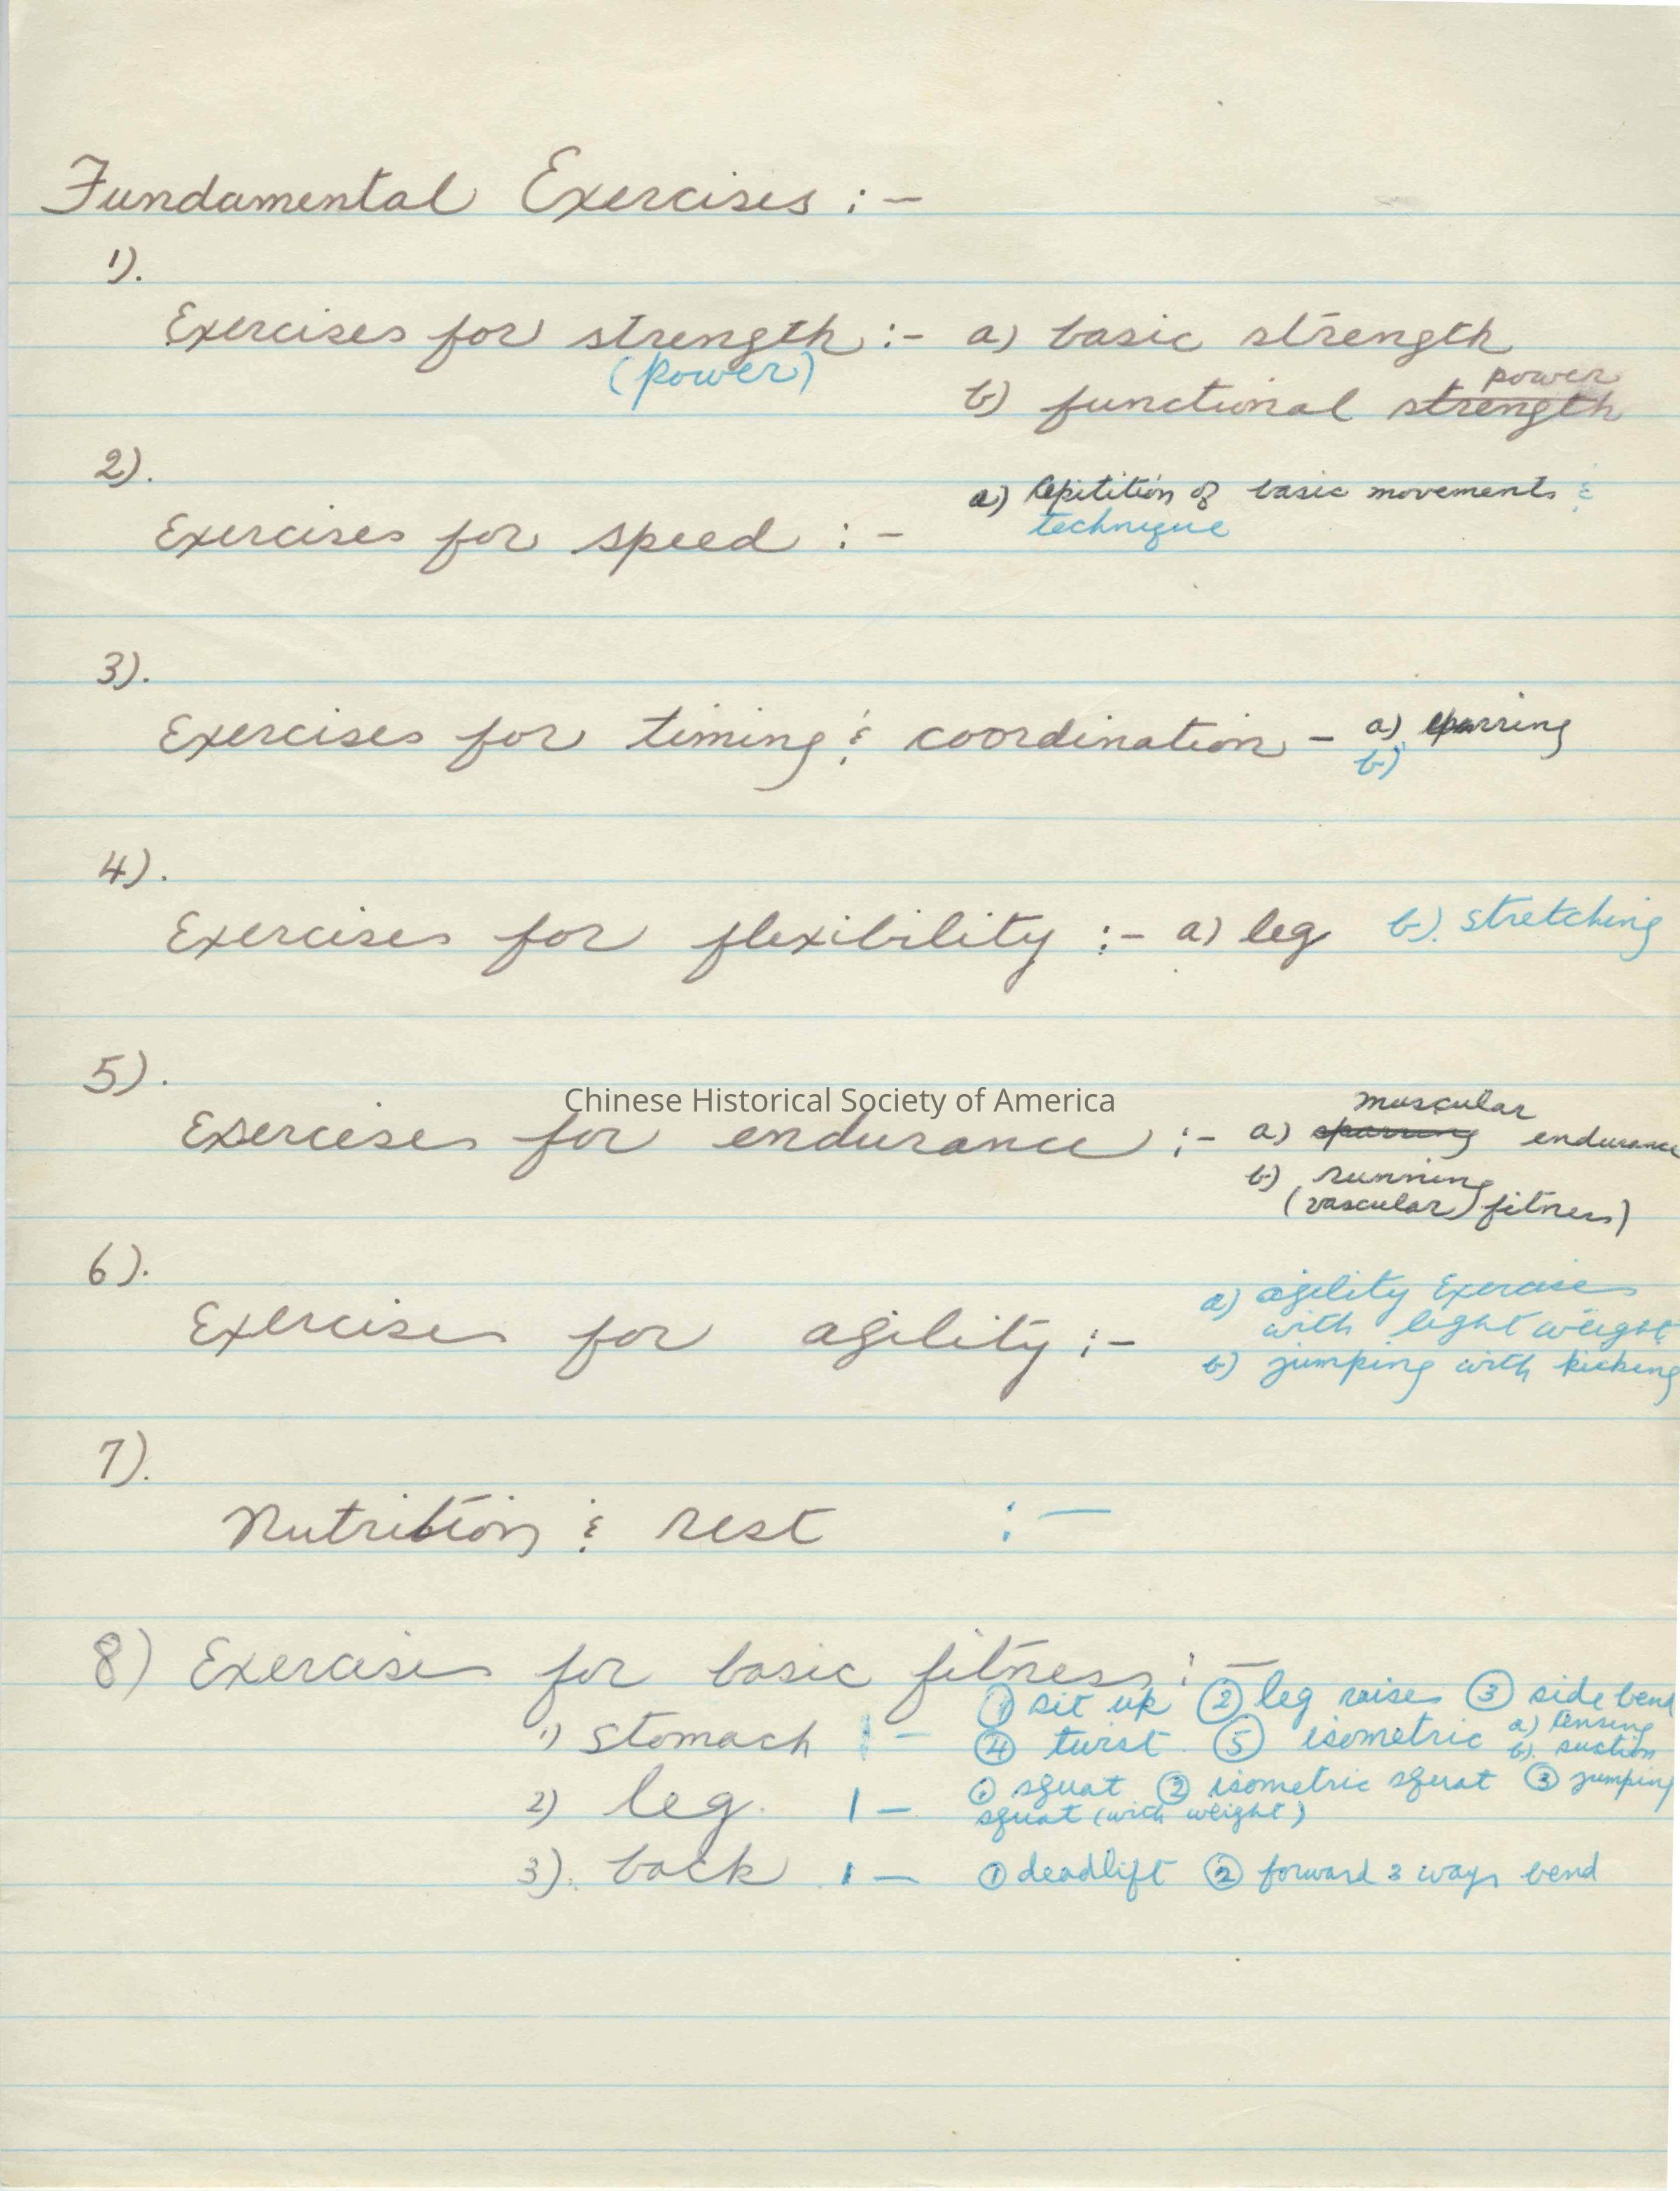 Fundamental Exercises :-
1).
Exercises for strength :- a) basic strength
(power)
power
b) functional strength
2).
a) Repitition of basic movements &
technique
Exercises for speed :-
3).
Exercises for timing & coordination - a) sparring
b)
4).
Exercises for flexibility :- a) leg b). stretching
5).
Chinese Historical Society of America
muscular
Exercises for endurance :- a) sparring endurance
b) running
(vascular fitness)
6).
a) agility Exercise
with light weight
Exercises for agility :-
b) jumping with kicking
7).
Nutrition & rest :-
8) Exercises for basic fitness :-
① sit up ② leg raises ③ side bend
1) stomach :- ④ twist ⑤ isometric a) tensing
b). suction
2) leg :- ① squat ② isometric squat ③ jumping
squat (with weight)
3). back :- ① deadlift ② forward 3 ways bend